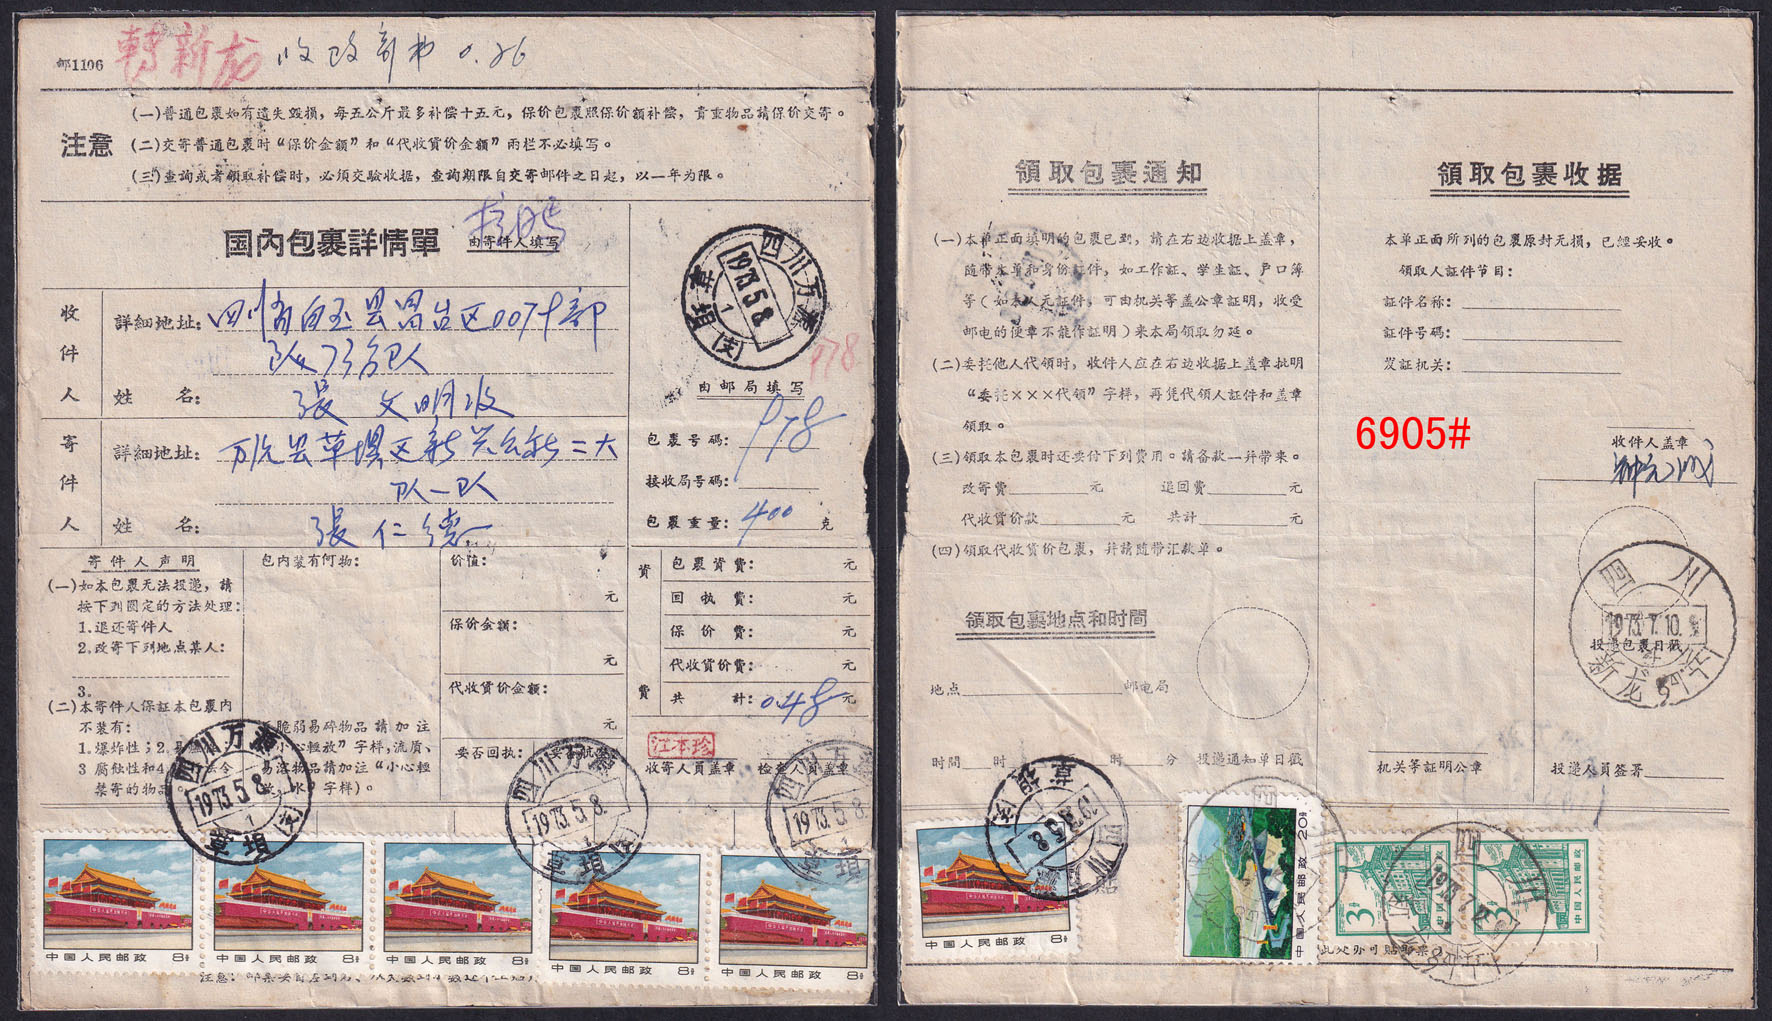 邮1106
轉新龙
收改寄费 0.26
注意
(一)普通包裹如有遗失毁損，每五公斤最多补偿十五元，保价包裹照保价額补偿，貴重物品請保价交寄。
(二)交寄普通包裹时“保价金額”和“代收貨价金額”兩栏不必填写。
(三)查詢或者領取补偿时，必須交驗收据，查詢期限自交寄邮件之日起，以一年为限。
国內包裹詳情單 由寄件人填写
收件人
詳細地址：四川省白玉县昌台区007部
姓 名：張文明收
寄件人
詳細地址：万沅县草壩区新兴公社二大
队一队
姓 名：張仁德
四川万源
1973.5.8
1
草垻(支)
978
由邮局填写
包裹号碼：978
接收局号碼：
包裹重量：400克
寄件人声明
(一)如本包裹无法投递，請
按下列圈定的方法处理：
1.退还寄件人
2.改寄下列地点某人：
3.
(二)本寄件人保証本包裹內
不装有：
1.爆炸性；2.易
3 腐蝕性和4
禁寄的物品。
包內装有何物：
脆弱易碎物品請加注
小心輕放”字样，流质、
易溶物品請加注“小心輕
放，水”字样)。
价值：
元
保价金額：
元
代收貨价金額：
元
要否回执：
資費
包裹資費： 元
回执費： 元
保价費： 元
代收貨价費： 元
共計：0.48元
江本珍
收寄人員盖章 检查人員盖章
四川万源
1973.5.8.
1
草垻(支)
四川万源
1973.5.8.
1
草垻(支)
四川万源
1973.5.8
草垻
中国人民邮政 8分
中国人民邮政 8分
中国人民邮政 8分
中国人民邮政 8分
中国人民邮政 8分
領取包裹通知
(一)本单正面填明的包裹已到，請在右边收据上盖章，
随带本单和身份証件，如工作証、学生証、戶口簿
等(如本人元証件，可由机关等盖公章証明，收受
邮电的便章不能作証明)来本局領取勿延。
(二)委托他人代領时，收件人应在右边收据上盖章批明
“委托×××代領”字样，再凭代領人証件和盖章
領取。
(三)領取本包裹时还要付下列費用。請备款一幷带来。
改寄費 元 退回費 元
代收貨价款 元 共計 元
(四)領取代收貨价包裹，幷請随带汇款单。
領取包裹地点和时間
地点 邮电局
时間 时 时 分 投递通知单日戳
領取包裹收据
本单正面所列的包裹原封无損，已經妥收。
領取人証件节目：
証件名称：
証件号碼：
发証机关：
6905#
收件人盖章
四川
1973.7.10.9
投递包裹日戳
新龙
机关等証明公章 投递人員签署
四川
1973.5.8.
草垻(支)
中国人民邮政 8分
20分
中国人民邮政
3分
中国人民邮政
3分
中国人民邮政
四川
1973.7
此处亦可貼邮票